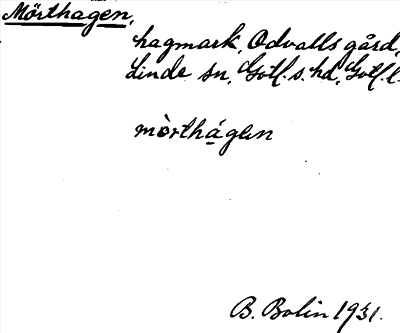 Mörthagen,
hagmark, Odvalls gård,
Linde sn, Gotl. s. hd, Gotl. l.
mòrthágen
B. Bolin 1931.